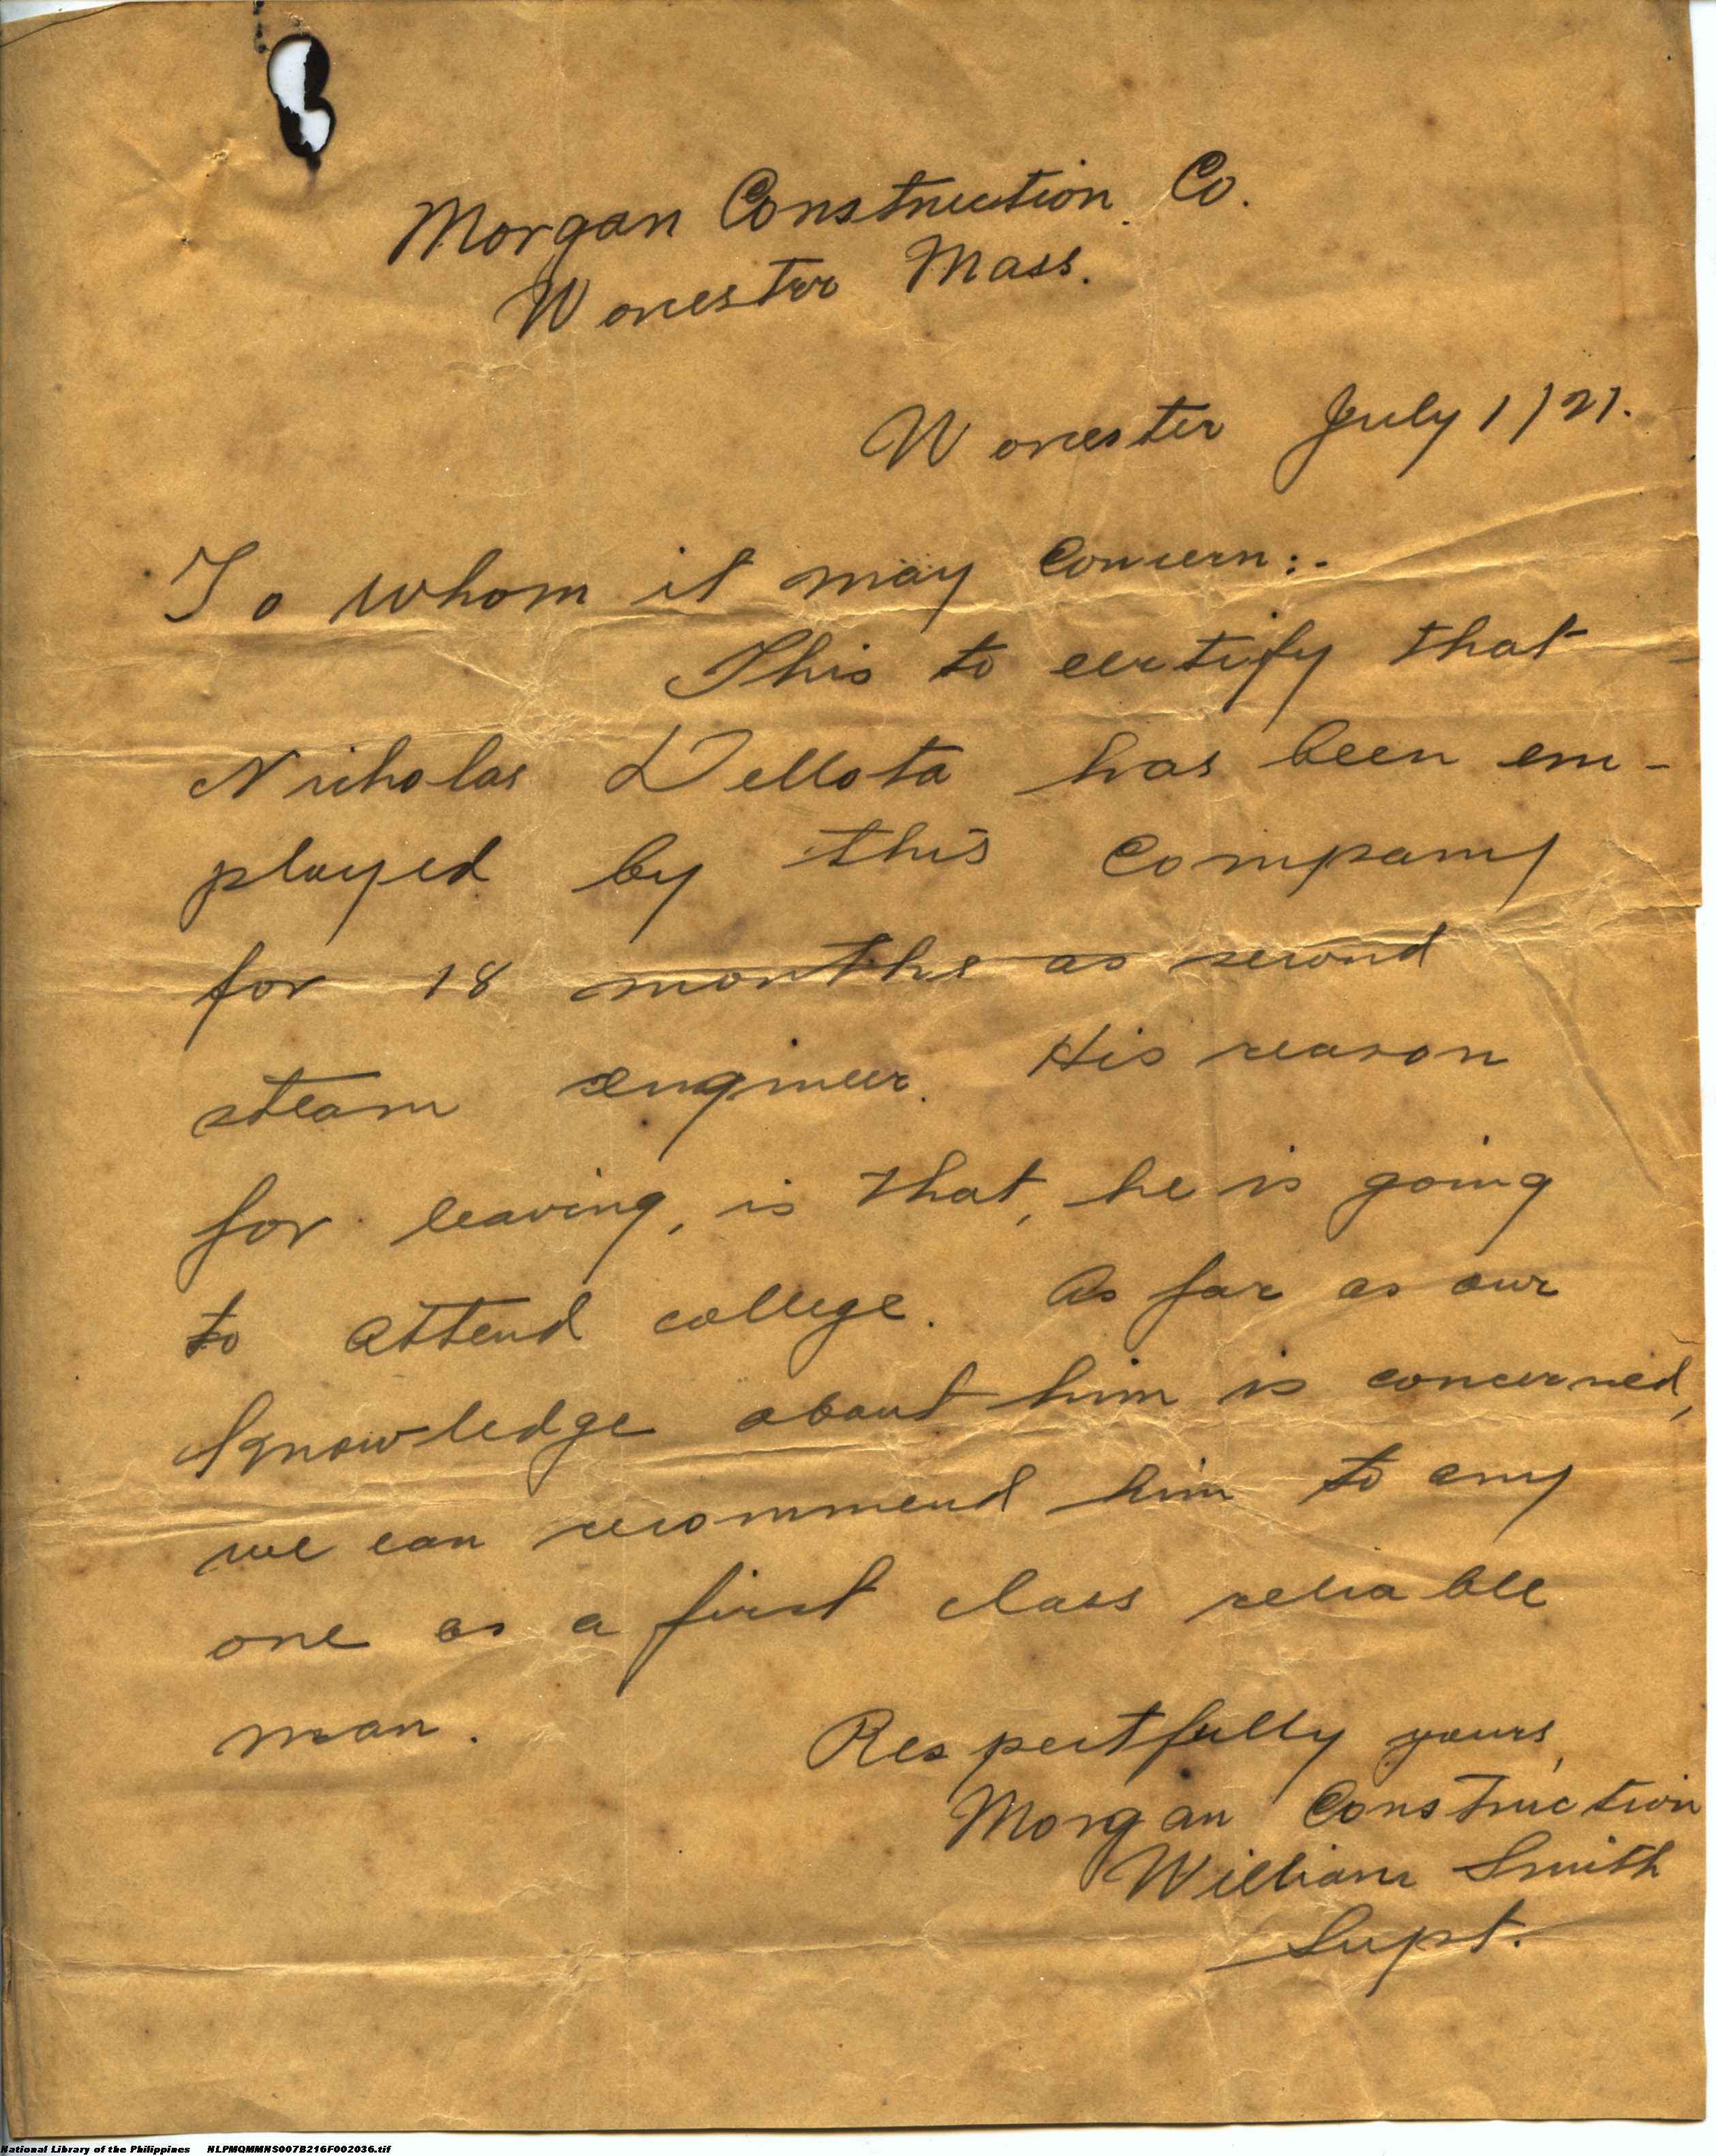 Morgan Construction Co.
Worcester Mass.
Worcester July 1/21.
To whom it may Concern:-
This to certify that
Nicholas Dellota has been em-
ployed by this Company
for 18 months as second
steam engineer. His reason
for leaving, is that, he is going
to attend college. As far as our
knowledge about him is concerned,
we can recommend him to any
one as a first class reliable
man.
Respectfully yours,
Morgan Construction
William Smith
Supt.
National Library of the Philippines NLPMQMMNS007B216F002036.tif